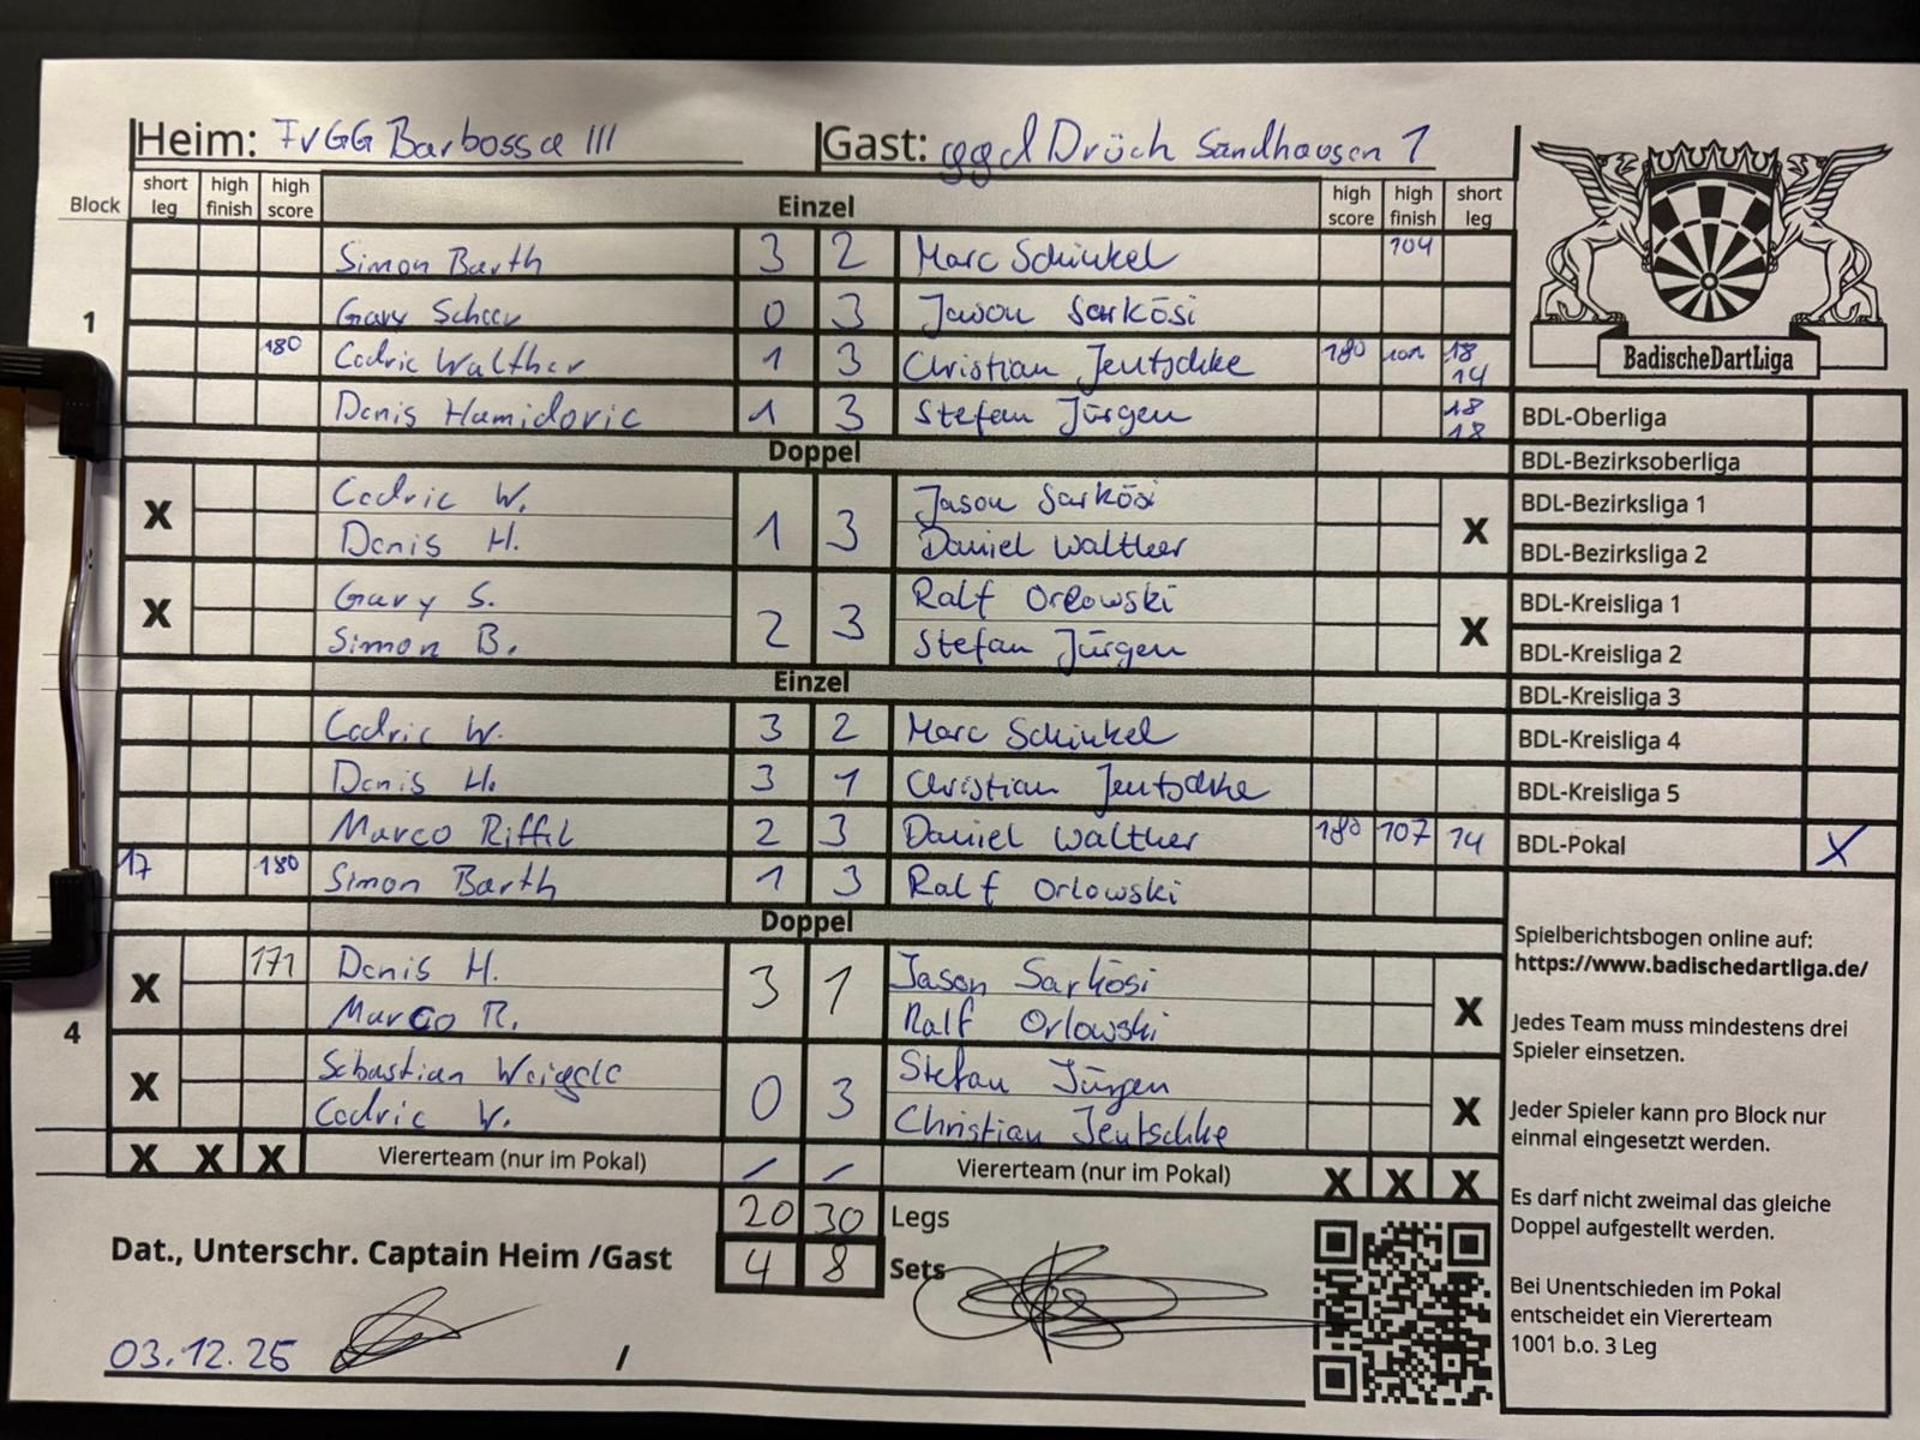 Heim: FvGG Barbossa III Gast: ggd Drüch Sandhausen 1
Block short leg high finish high score Einzel high score high finish short leg
Simon Barth 3 2 Marc Schinkel 104
1
Gary Scheer 0 3 Jason Sarkösi
180 Cedric Walther 1 3 Christian Jeutschke 180 18 14
Denis Hamidovic 1 3 Stefan Jürgen 18 18
BadischeDartLiga
BDL-Oberliga
Doppel
BDL-Bezirksoberliga
Cedric W. Jason Sarkösi
X 1 3 X
Denis H. Daniel Walther
BDL-Bezirksliga 1
BDL-Bezirksliga 2
Gary S. Ralf Orlowski
X 2 3 X
Simon B. Stefan Jürgen
BDL-Kreisliga 1
BDL-Kreisliga 2
Einzel
BDL-Kreisliga 3
Cedric W. 3 2 Marc Schinkel
BDL-Kreisliga 4
Denis H. 3 1 Christian Jeutschke
BDL-Kreisliga 5
Marco Riffil 2 3 Daniel Walther 180 107 14
BDL-Pokal X
17 180 Simon Barth 1 3 Ralf Orlowski
Doppel
171 Denis H. Jason Sarkösi
X 3 1 X
Marco R. Ralf Orlowski
4
Sebastian Weigele Stefan Jürgen
X 0 3 X
Cedric W. Christian Jeutschke
X X X Viererteam (nur im Pokal) / / Viererteam (nur im Pokal) X X X
20 30 Legs
4 8 Sets
Dat., Unterschr. Captain Heim /Gast
03.12.25 /
Spielberichtsbogen online auf:
https://www.badischedartliga.de/
Jedes Team muss mindestens drei
Spieler einsetzen.
Jeder Spieler kann pro Block nur
einmal eingesetzt werden.
Es darf nicht zweimal das gleiche
Doppel aufgestellt werden.
Bei Unentschieden im Pokal
entscheidet ein Viererteam
1001 b.o. 3 Leg